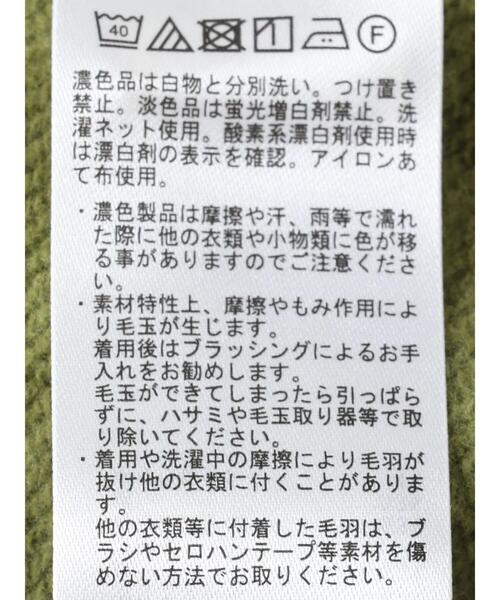 40 F
濃色品は白物と分別洗い。つけ置き
禁止。淡色品は蛍光増白剤禁止。洗
濯ネット使用。酸素系漂白剤使用時
は漂白剤の表示を確認。アイロンあ
て布使用。
・濃色製品は摩擦や汗、雨等で濡れ
た際に他の衣類や小物類に色が移
る事がありますのでご注意くださ
い。
・素材特性上、摩擦やもみ作用によ
り毛玉が生じます。
着用後はブラッシングによるお手
入れをお勧めします。
毛玉ができてしまったら引っぱら
ずに、ハサミや毛玉取り器等で取
り除いてください。
・着用や洗濯中の摩擦により毛羽が
抜け他の衣類に付くことがありま
す。
他の衣類等に付着した毛羽は、ブ
ラシやセロハンテープ等素材を傷
めない方法でお取りください。